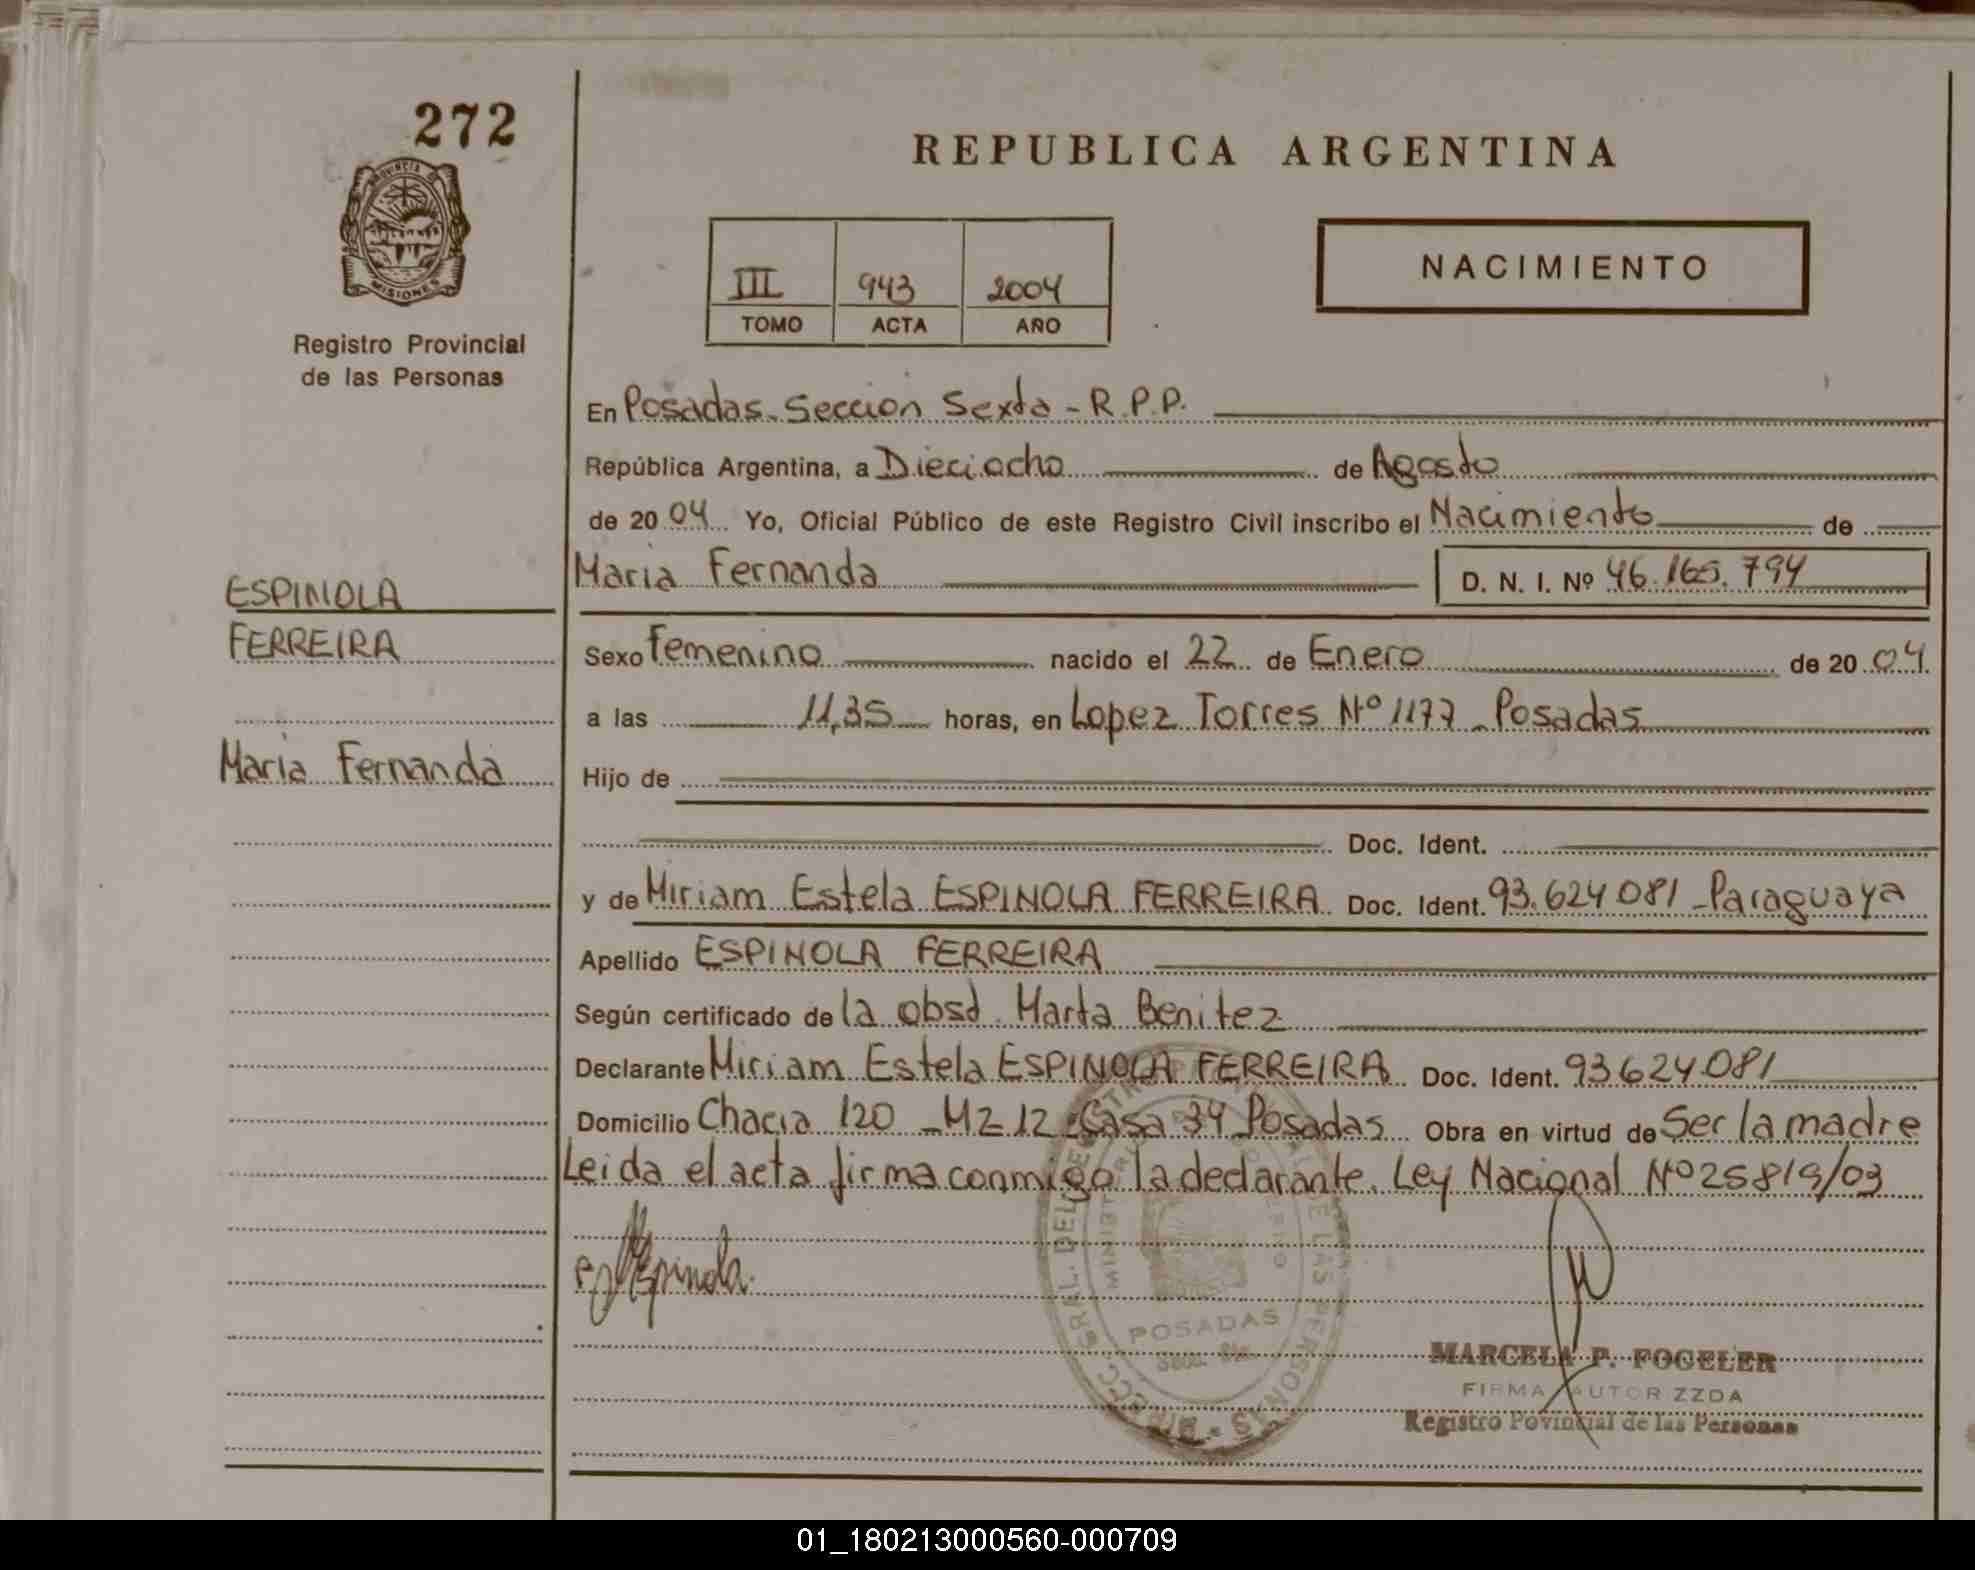 272
PROVINCIA DE
MISIONES
Registro Provincial
de las Personas
REPUBLICA ARGENTINA
III 943 2004
TOMO ACTA AÑO
NACIMIENTO
En Posadas - Seccion Sexta - R.P.P.
República Argentina, a Dieciocho de Agosto
de 2004 Yo, Oficial Público de este Registro Civil inscribo el Nacimiento de
Maria Fernanda D. N. I. Nº 46.165.794
ESPINOLA
FERREIRA
Maria Fernanda
Sexo Femenino nacido el 22 de Enero de 2004.
a las 11,35 horas, en Lopez Torres Nº 1177 - Posadas
Hijo de
Doc. Ident.
y de Miriam Estela ESPINOLA FERREIRA Doc. Ident. 93.624081 - Paraguaya
Apellido ESPINOLA FERREIRA
Según certificado de la obst. Marta Benitez
Declarante Miriam Estela ESPINOLA FERREIRA Doc. Ident. 93624081
Domicilio Chacra 120 - Mz 12 - Casa 34 Posadas Obra en virtud de Ser la madre
Leida el acta firma conmigo la declarante. Ley Nacional Nº 25819/03
Espinola
POSADAS
MARCELA P. FOGELER
FIRMA AUTORIZZDA
Registro Povincial de las Personas
01_180213000560-000709